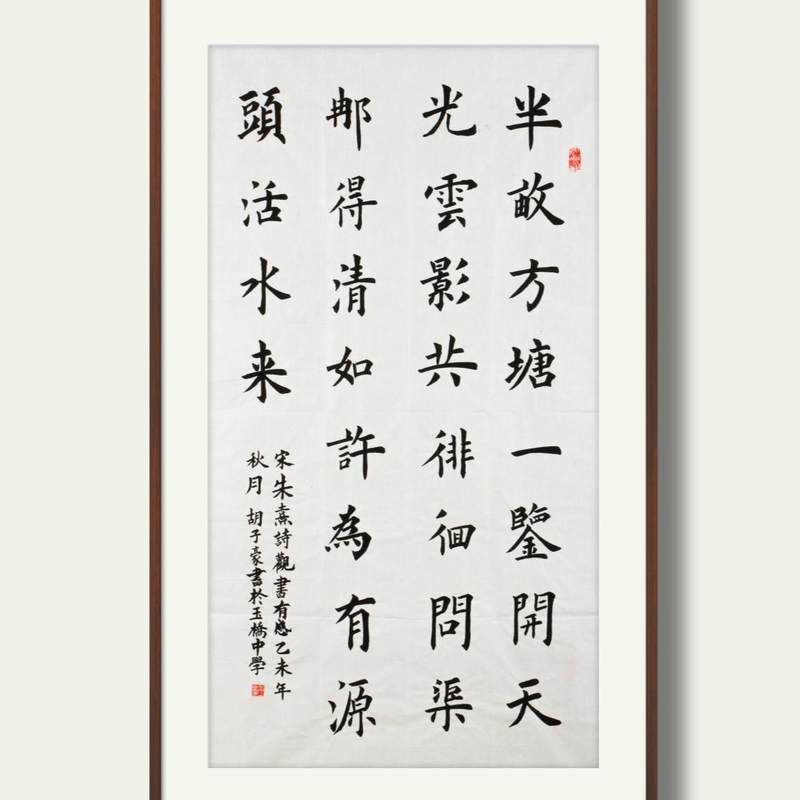 半畝方塘一鑒開天
光雲影共徘徊問渠
那得清如許為有源
頭活水来
宋朱熹詩觀書有感乙未年
秋月胡子豪書於玉橋中學